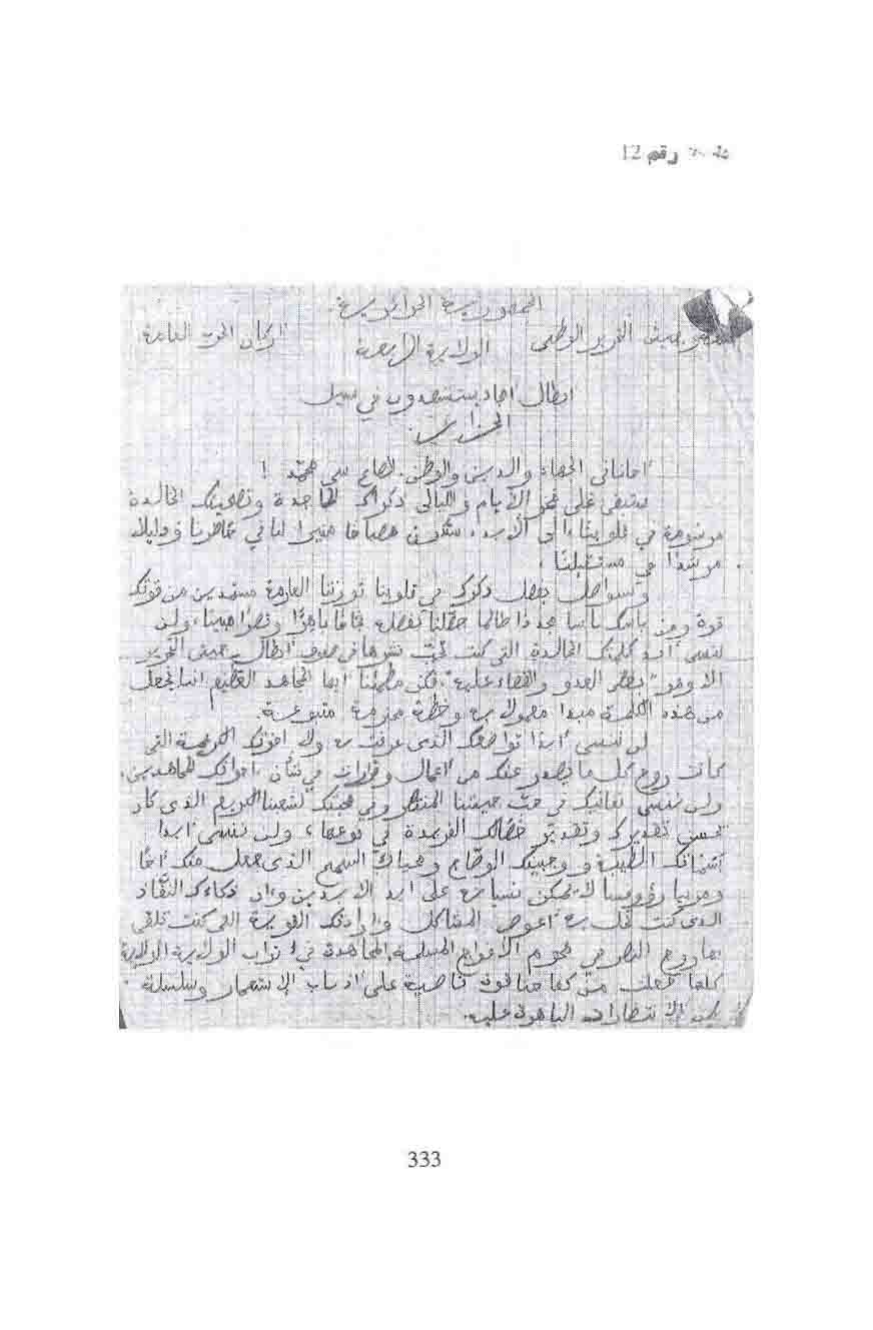 رقم 12
الجمهورية الجزائرية
جيش التحرير الوطني الولاية الرابعة أركان الحرب العامة
أبطال أمجاد يستشهدون في سبيل
الجزائر
أخانا في الجهاد والدين والوطن. الصاغ سي محمد !
ستبقى على ممر الأيام والليالي ذكراك الماجدة وتضحيتك الخالدة
مرسومة في قلوبنا إلى الأبد، ستكون مصباحا منيرا لنا في حاضرنا ودليلا
مرشدا في مستقبلنا.
وسنواصل بفضل ذكرك في قلوبنا ثورتنا العارمة مستمدين من قوتك
قوة ومن بأسك بأسا هذا طالما حققنا بفضله نجاحا باهرا ونصرا مبينا، ولن
ننسى أبدا كلمتك الخالدة التي كنت تحب نشرها في صفوف أبطال جيش التحرير
ألا وهي "بغض العدو والقضاء عليه" فكن مطمئنا أيها المجاهد العظيم أننا نجعل
من هذه الكلمة مبدأ معمولا به وخطة محترمة متبوعة.
لن ننسى أبدا تواضعك الذي عرفت به ولا أخوتك الكريمة التي
كانت روح كل ما يصدر عنك من أعمال وقرارات في شأن إخوانك المجاهدين.
ولن ننسى تفانيك في حب جيشنا المنتصر وفي محبتك لشعبنا الكريم الذي كان
يحسن تقديرك وتقدير خصالك الفريدة في نوعها، ولن ننسى أبدا
الطيبة وجبينك الوضاح ومحياك السمح الذي جعل منك أخا
ومربيا ورئيسا لا يمكن نسيانه على أبد الآبدين وأن ذكاءك النفاذ
الذي كنت تحل به أعوص المشاكل وإرادتك القوية التي كنت تلقي
بها روح النصر في هجوم الأفواج المسلحة المجاهدة في تراب الولاية
كلها جعلت من كفاحنا قوة قاضية على أذناب الإستعمار وسلسلة
من الانتصارات الباهرة عليه.
333